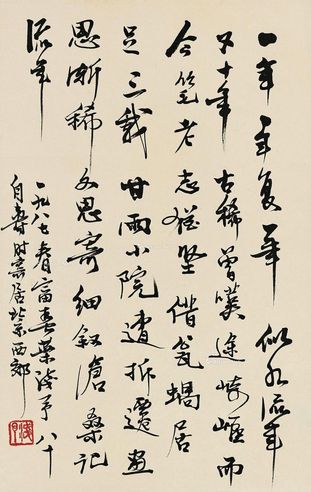 一年一年复一年 似水流年
又十年 古稀曾嘆途崎嶇而
今笔老志猶坚 借瓮蝸居
足三载 甘雨小院遭拆遷 画
思渐稀 文思寄 细叙滄桑记
流年
一九八七春富春葉浅予八十
自寿时寄居北京西郊